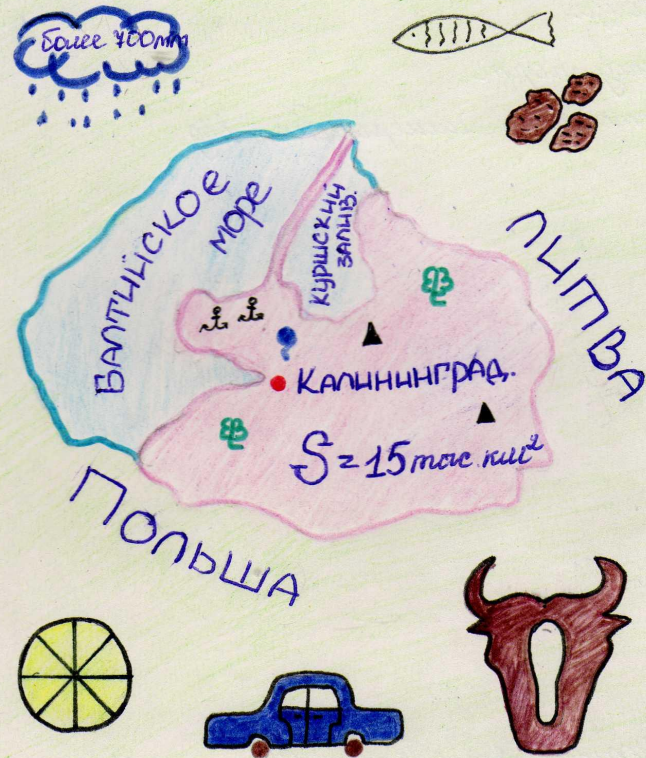 более 700мм
Балтийское
море
Куршский
залив.
Литва
Калининград.
S = 15 тыс. км²
Польша